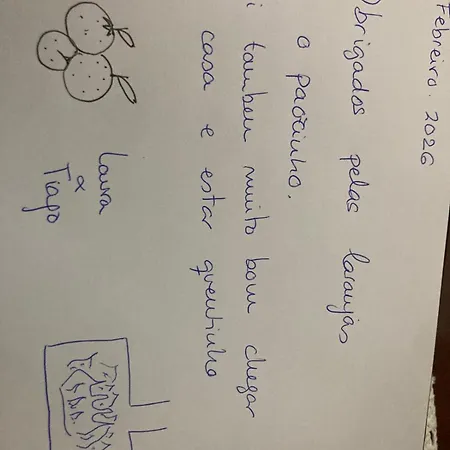 Febreiro. 2026
Obrigados pelas laranjas
o pãozinho.
i tambem muito bom chegar
casa e estar quentinho
Laura
&
Tiago